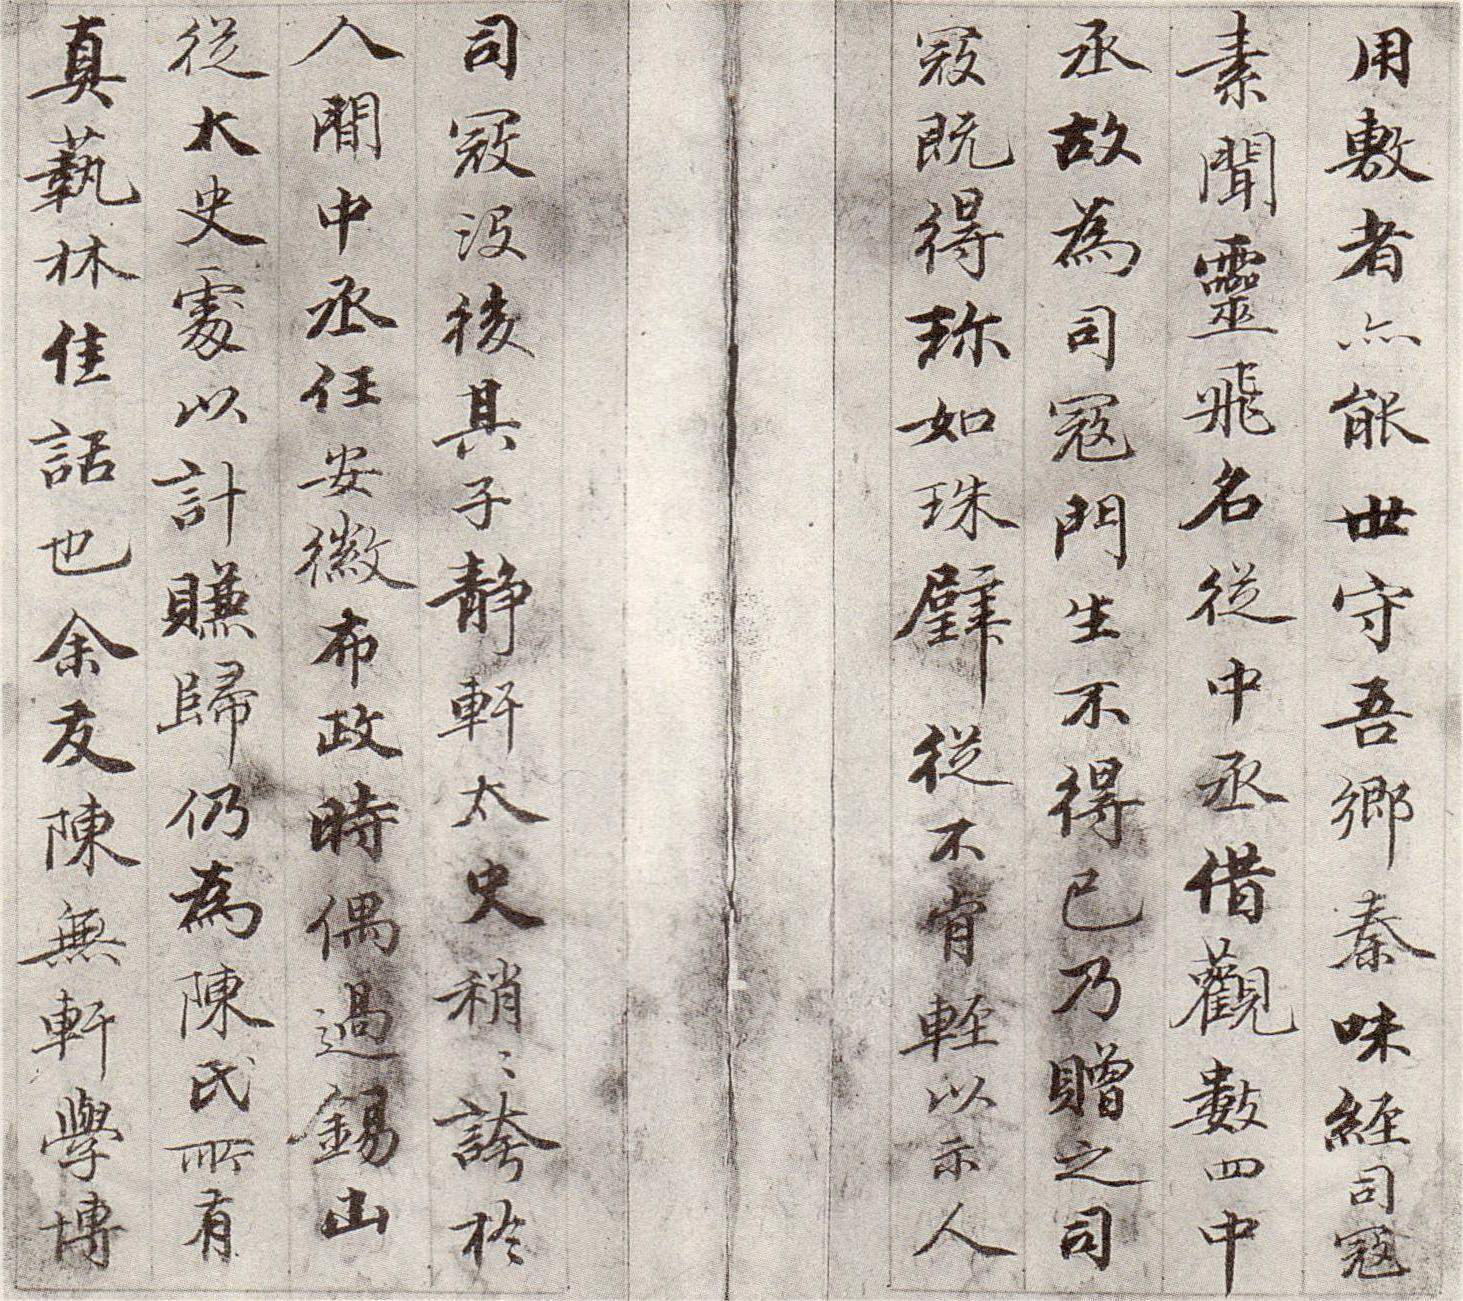 用敷者亦能世守吾鄉秦味經司寇
素聞靈飛名從中丞借觀數四中
丞故為司寇門生不得已乃贈之司
寇既得珎如珠璧從不肯輕以示人
司寇没後其子静軒太史稍〻誇於
人間中丞任安徽布政時偶過錫山
從太史處以計賺歸仍為陳氏所有
真藝林佳話也余友陳無軒學博